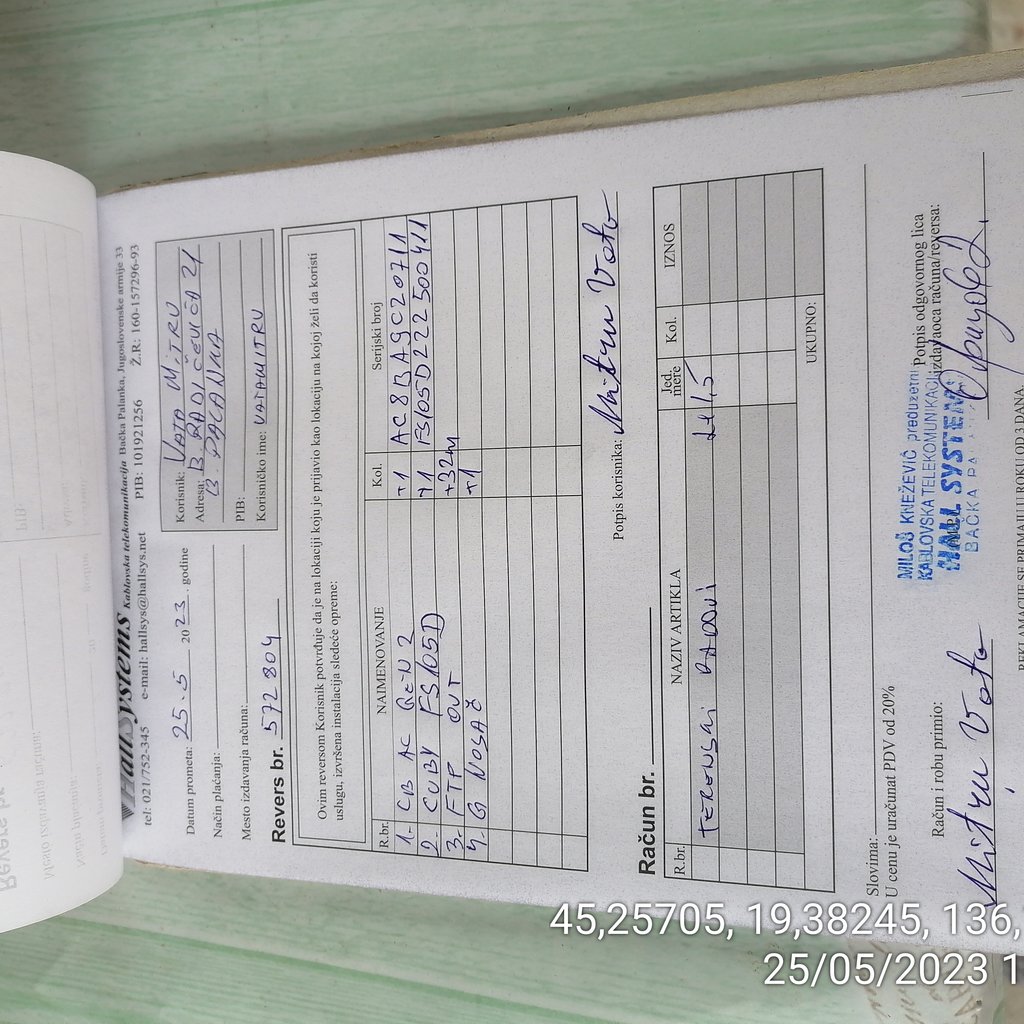 HallSystems Kablovska telekomunikacija Bačka Palanka, Jugoslovenske armije 33
tel: 021/752-345 e-mail: hallsys@hallsys.net PIB: 101921256 Ž.R.: 160-157296-93
Datum prometa: 25.5 2023. godine
Način plaćanja:
Mesto izdavanja računa:
Korisnik: VATA MITRU
Adresa: B. RADIČEVIĆA 21
B. PALANKA
PIB:
Korisničko ime: VATAMITRU
Revers br. 572804
Ovim reversom Korisnik potvrđuje da je na lokaciji koju je prijavio kao lokaciju na kojoj želi da koristi
uslugu, izvršena instalacija sledeće opreme:
R.br. NAIMENOVANJE Kol. Serijski broj
1. CB AC GEN 2 +1 AC8BA9C20711
2. CUBY FS105D +1 FS105D222500411
3. FTP OUT +32m
4. G NOSAČ +1
Potpis korisnika: Mitru Vata
Račun br.
R.br. NAZIV ARTIKLA Jed. mere Kol. IZNOS
TERENSKI RADOVI
UKUPNO:
Slovima:
U cenu je uračunat PDV od 20%
Račun i robu primio:
Mitru Vata
MILOŠ KNEŽEVIĆ preduzetnik
KABLOVSKA TELEKOMUNIKACIJA
HALL SYSTEMS
BAČKA PA
Potpis odgovornog lica
izdavaoca računa/reversa:
REKLAMACIJE SE PRIMAJU U ROKU OD 3 DANA
45,25705, 19,38245, 136,
25/05/2023 1